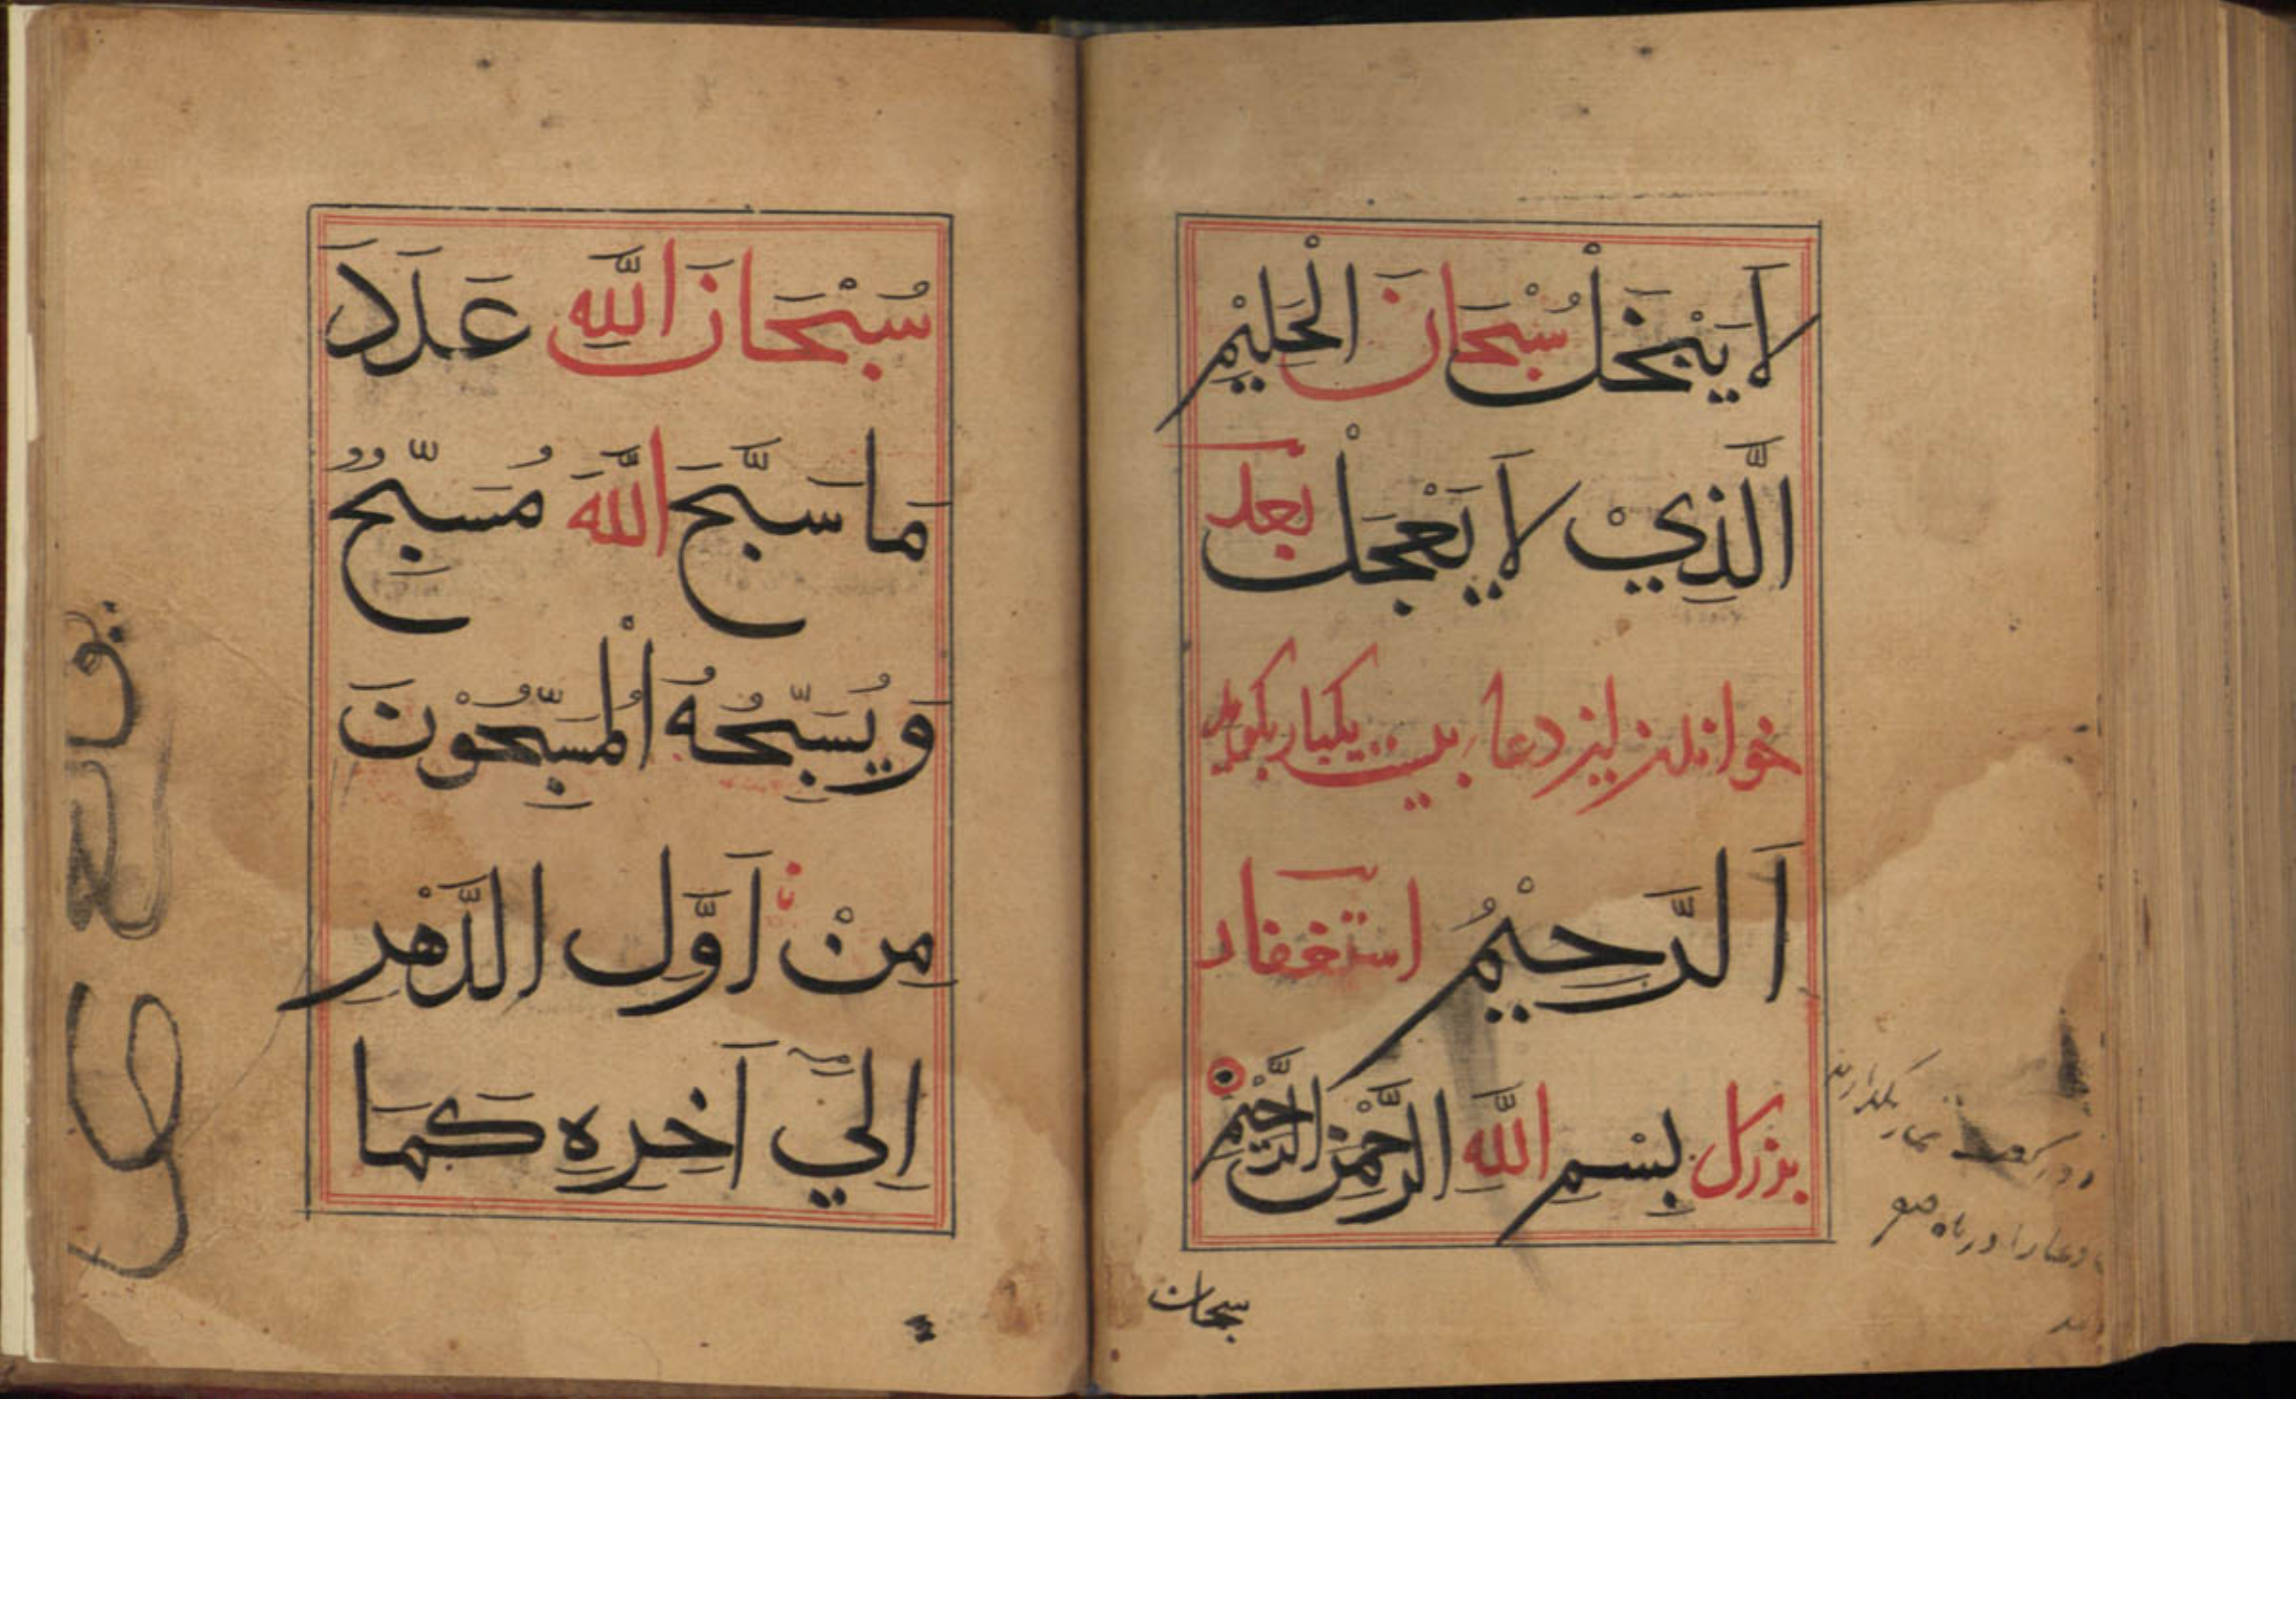 لَا يَبْخَلْ سُبْحَانَ الْحَلِيْمِ
الَّذِيْ لَا يَعْجَلْ بعد
خواندن این دعا یکبار بکوید
اَلرَّحِيْمُ استغفار
بزرك بِسْمِ اللَّهِ الرَّحْمٰنِ الرَّحِيْمِ
سبحان
سُبْحَانَ اللَّهِ عَدَدَ
مَا سَبَّحَ اللَّهَ مُسَبِّحٌ
وَيُسَبِّحُهُ الْمُسَبِّحُوْنَ
مِنْ اَوَّلِ الدَّهْرِ
اِلٰيَ آخِرِهِ كَمَا